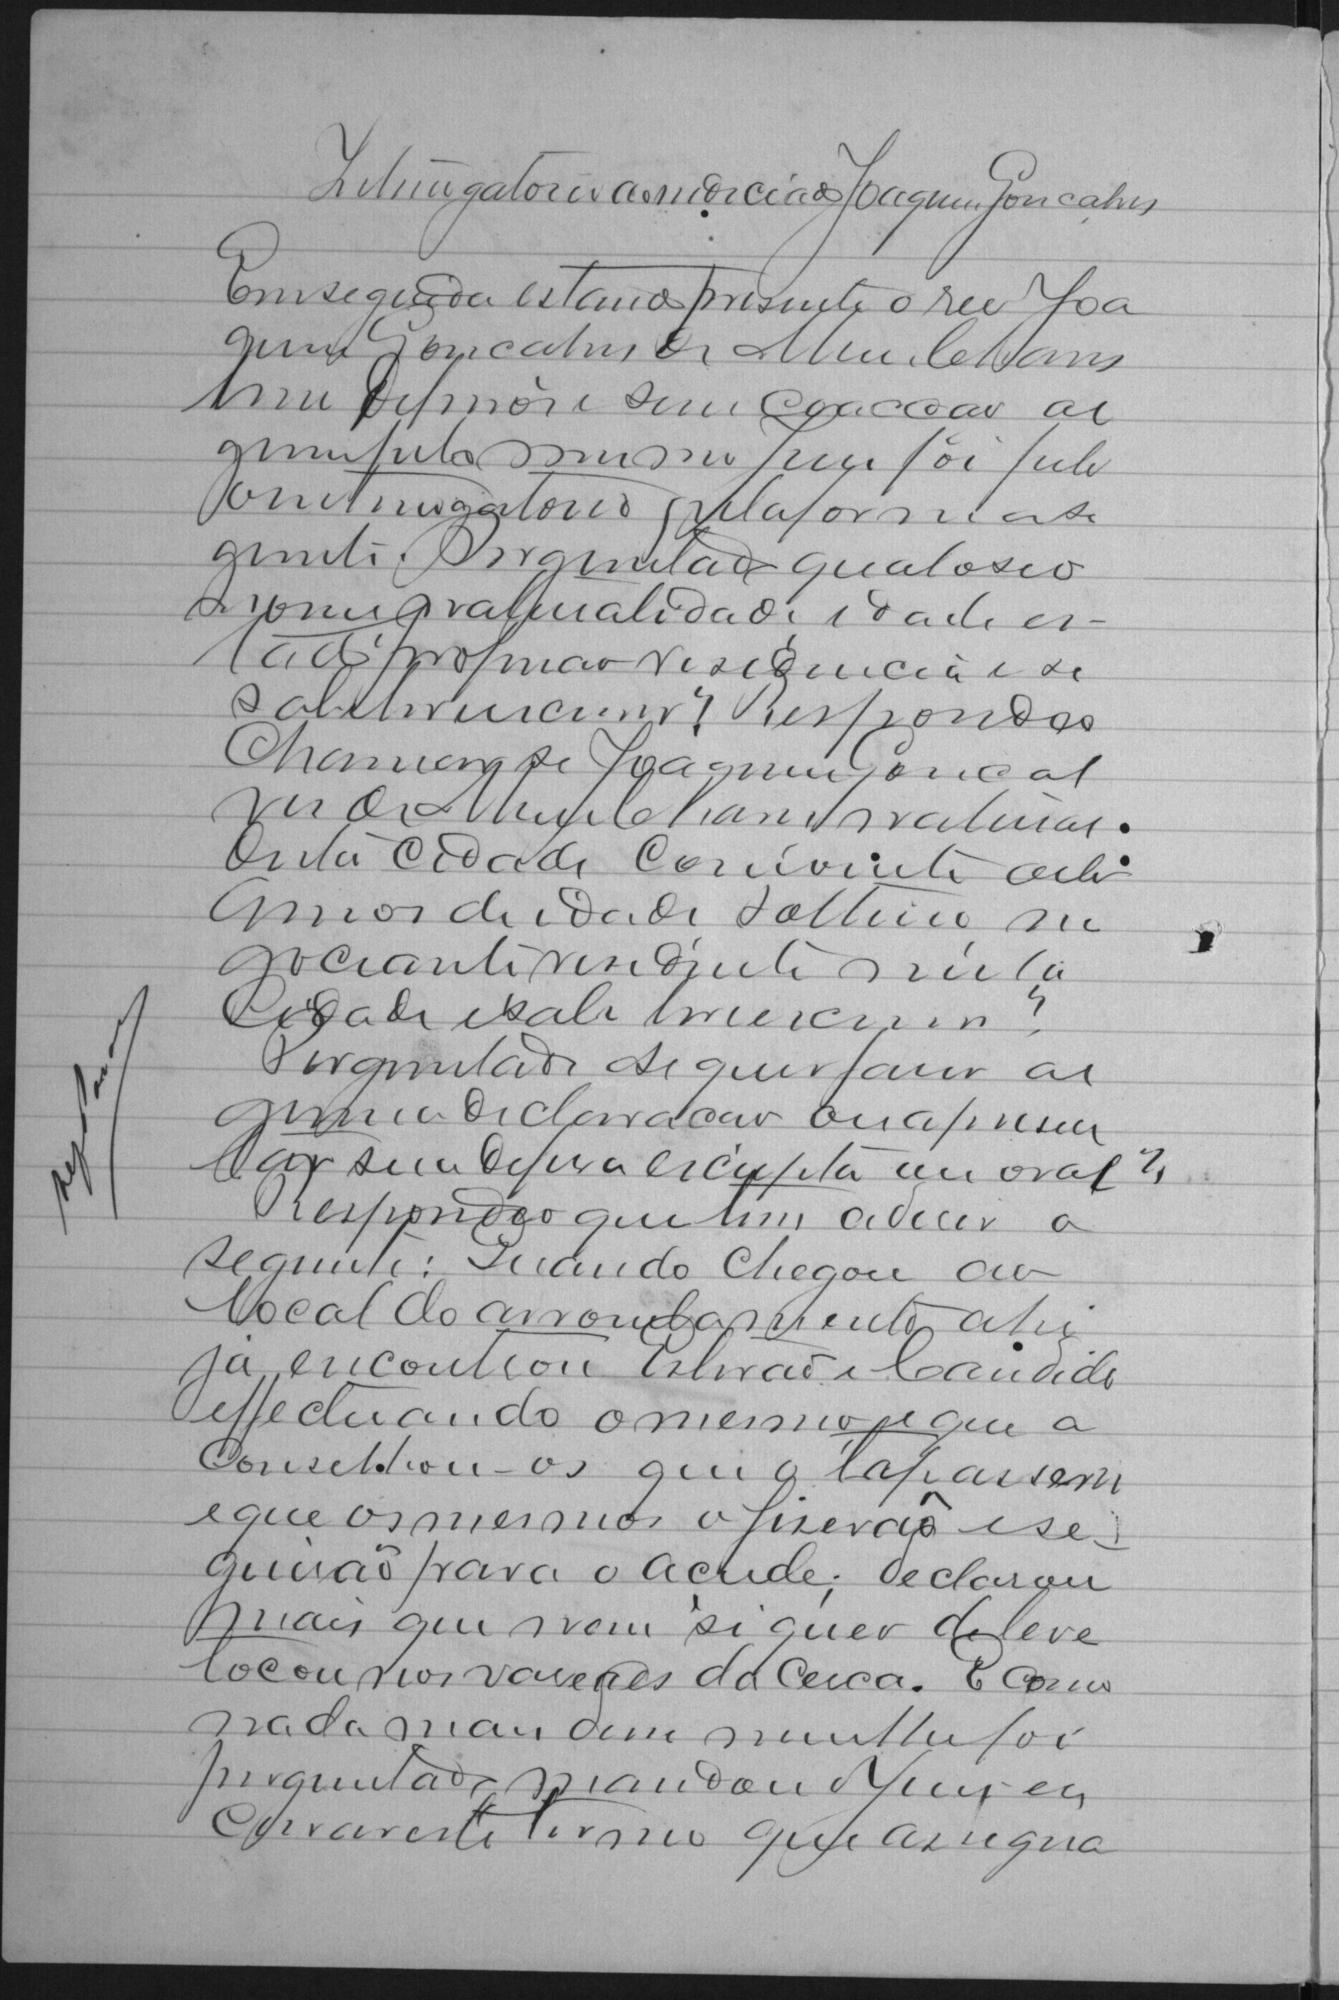 Interrogatorio ao denunciado Joaquim Goncalves
Em seguida estando presente o reo Joa
quim Goncalves de
livre de ferros e sem coaccao al
guma pelo mesmo Juiz foi feito
o interrogatorio pela forma se
guinte. Perguntado qual o seo
nome naturalidade idade es-
tado profissao residencia e se
sabe ler e escrever? Respondeo
Chamar-se Joaquim Goncal
ves de natural
desta Cidade com vinte oito
annos de idade solteiro ne
gociante residente nesta
Cidade e sabe ler e escrever?
Perguntado se quer fazer al
guma declaracao ou apresen
tar sua defesa escripta ou oral?
Respondeo que tem a dizer o
seguinte: Quando chegou ao
local do arrombamento ahi
já encontrou Estevão e Candido
effectuando o mesmo, e que a
conselhou-os que o tapassem
e que os mesmos o fizerão e se-
guirão para o acude; declarou
mais que nem siquer de leve
tocou nos varões da cerca. E como
nada mais disse nem lhe foi
perguntado, mandou o Juiz en
cerrar este termo que assigna